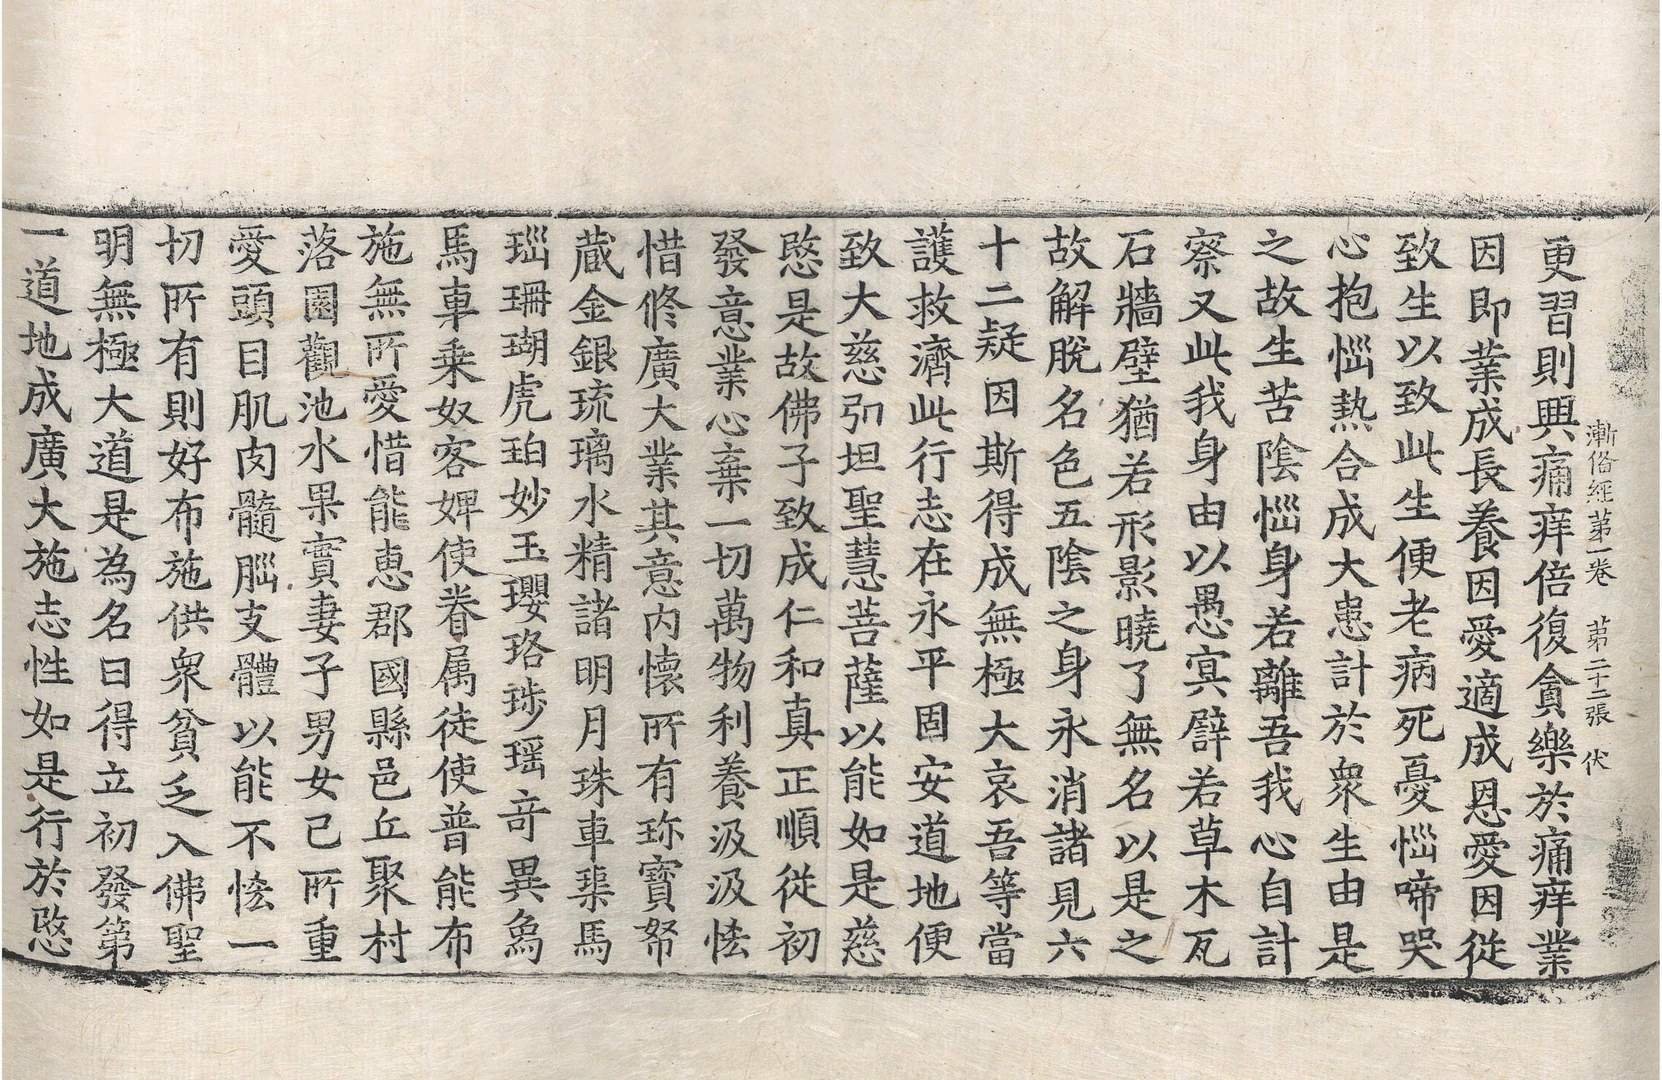 漸俻經第一卷　第二十二張　伏
更習則興痛痒倍復貪樂於痛痒業
因即業成長養因愛適成恩愛因從
致生以致此生便老病死憂惱啼哭
心抱惱熱合成大患計於衆生由是
之故生苦陰惱身若離吾我心自計
察又此我身由以愚冥譬若草木瓦
石牆壁猶若形影曉了無名以是之
故解脫名色五陰之身永消諸見六
十二疑因斯得成無極大哀吾等當
護救濟此行志在永平固安道地便
致大慈引坦聖慧菩薩以能如是慈
愍是故佛子致成仁和真正順從初
發意業心棄一切萬物利養汲汲恡
惜修廣大業其意內懷所有珎寶帑
蔵金銀琉璃水精諸明月珠車璖馬
瑙珊瑚虎珀妙玉瓔珞瑤奇異象
馬車乘奴客婢使眷属徒使普能布
施無所愛惜能惠郡國縣邑丘聚村
落園觀池水果實妻子男女己所重
愛頭目肌肉髓腦支體以能不恡一
切所有則好布施供衆貧乏入佛聖
明無極大道是為名曰得立初發第
一道地成廣大施志性如是行於愍